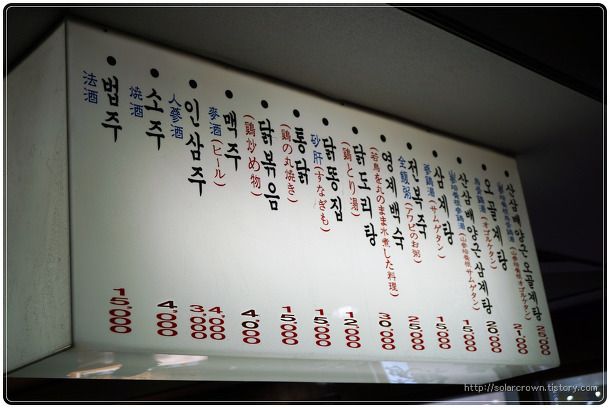 산삼배양근오골계탕
오골계탕
(オゴルケタン)
산삼배양근삼계탕
삼계탕
蔘鷄湯(サムゲタン)
전복죽
全鰒粥(アワビのお粥)
영계백숙
(若鳥を丸のまま水煮した料理)
30,000
닭도리탕
(鶏とり湯)
12,000
닭똥집
砂肝(すなぎも)
15,000
통닭
(鶏の丸焼き)
15,000
닭볶음
(鶏炒め物)
맥주
麥酒(ビール)
4,000
인삼주
人蔘酒
3,000
소주
焼酒
4,000
법주
法酒
15,000
http://solarcrown.tistory.com